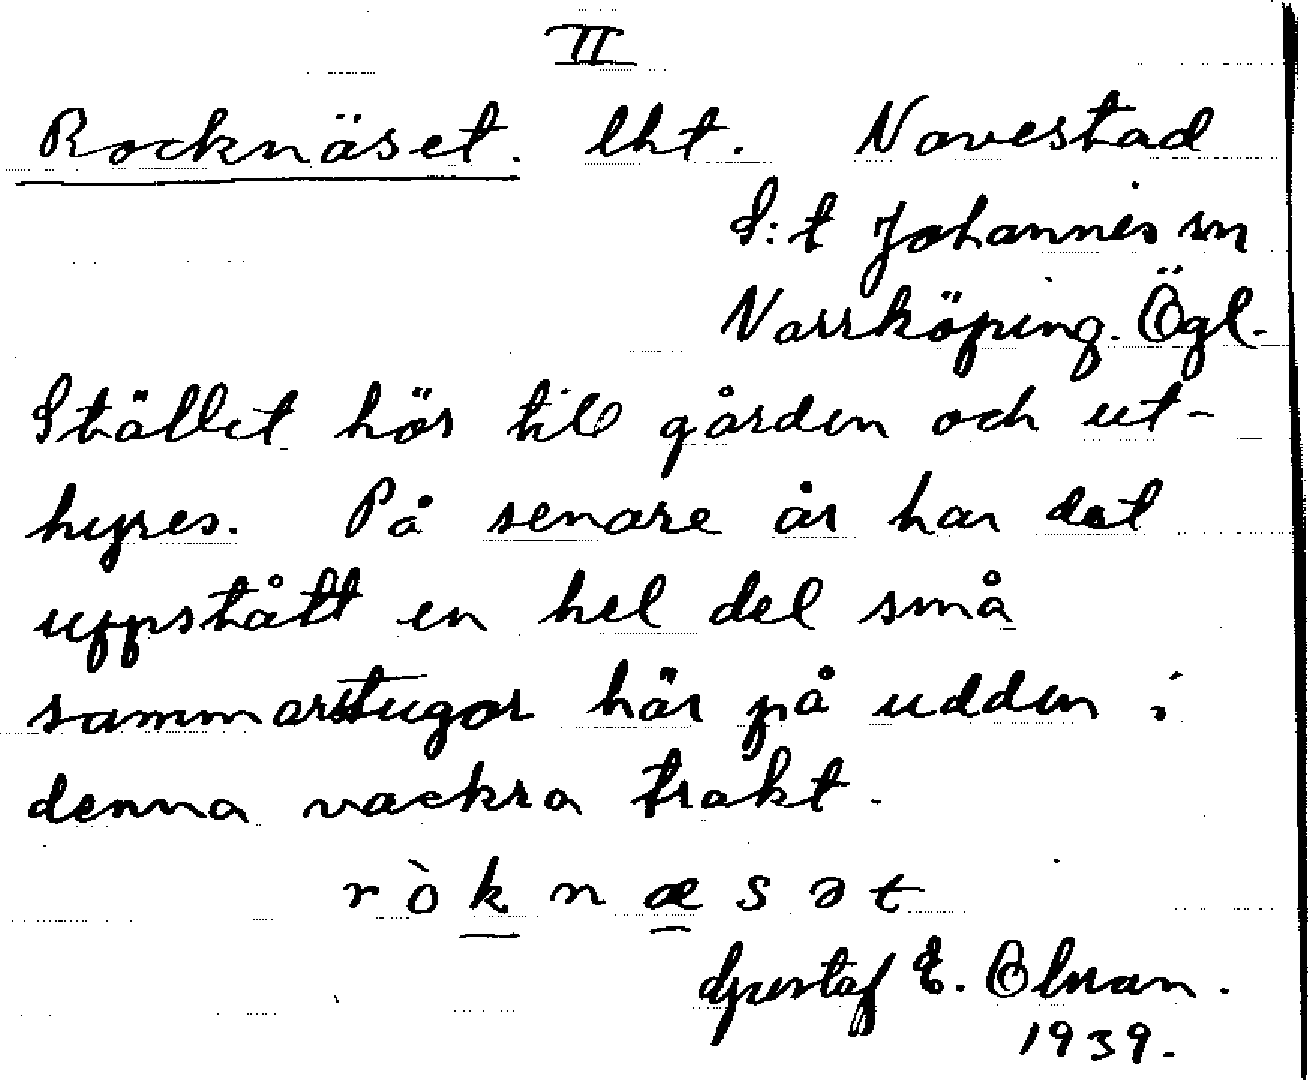 II
Rocknäset. lht. Navestad
S:t Johannes sn
Norrköping. Ögl.
Stället hör till gården och ut-
hyres. På senare år har det
uppstått en hel del små
sommarstugor här på udden i
denna vackra trakt.
r ò k n æ s ə t
Gustaf E. Olsson.
1939.